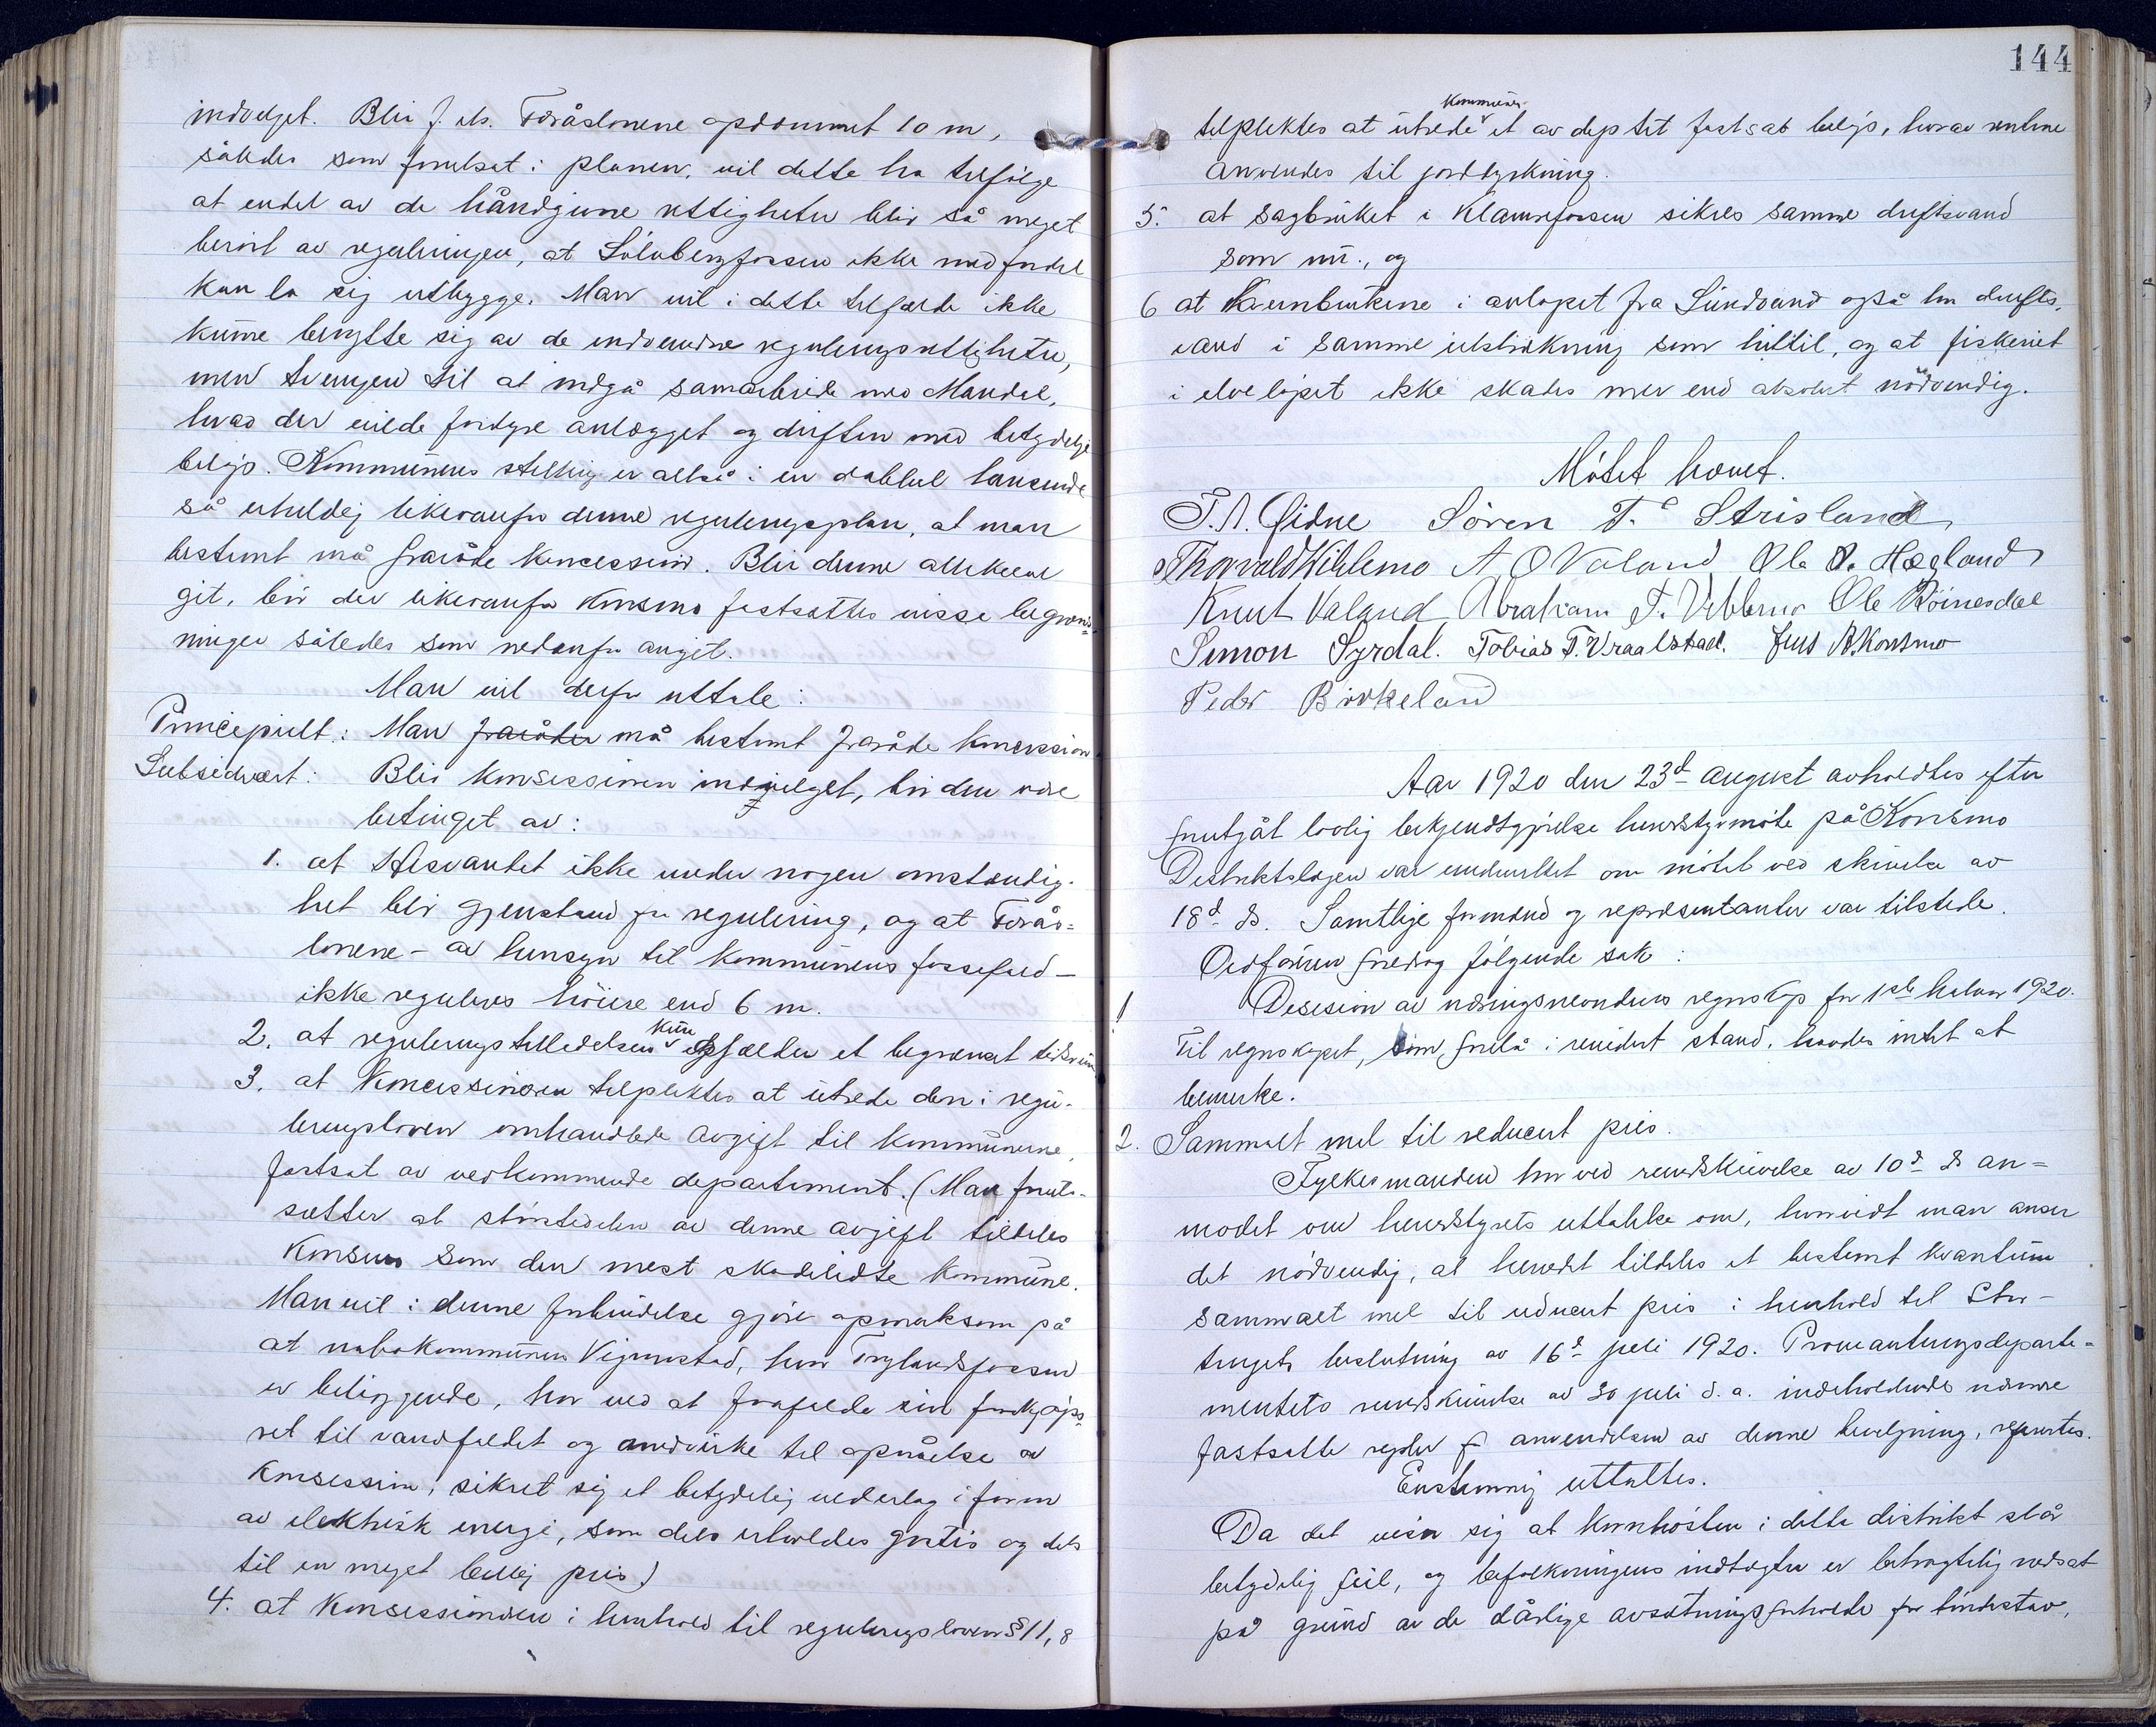 indvelget. Blir f. eks. Foråslonene opdæmmet 10 m,
således som forutsat i planen, vil dette ha tilfølge
at endel av de håndgivne rettigheter blir så meget
berørt av reguleringen, at Sólubergfossen ikke med fordel
kan la sig utbygge. Man vil i dette tilfælde ikke
kunne benytte sig av de indvundne reguleringsrettigheter,
men tvunget til at indgå samarbeide med Mandal,
hvad der vilde fordyre anlægget og driften med betydelige
beløp. Kommunens stilling er altså i en dobbel henseende
så uheldig likeoverfor denne reguleringsplan, at man
bestemt må fraråde koncession. Blir denne allikevel
git, bør der likeoverfor Konsmo fastsættes visse begræns-
ninger således som nedenfor angit.
Man vil derfor uttale:
Principielt: Man fraråder må bestemt fraråde koncession.
Subsidiært: Blir konsessionen indvilget, bør den være
betinget av:
1. at vandet ikke under nogen omstændig-
het blir gjenstand for regulering, og at Forås-
lonene - av hensyn til kommunens fossefald -
ikke reguleres høiere end 6 m.
2. at reguleringstilladelsen kun et begrænset tidsrum
3. at koncessionæren tilpliktes at utrede den i regu-
leringsloven omhandlede avgift til kommunene,
fastsat av vedkommende departement. (Man forut-
sætter at størstedelen av denne avgift tildeles
Konsmo som den mest skadelidte kommune.
Man vil i denne forbindelse gjøre opmerksom på
at nabokommunen Vigmostad, hvor Tryslandsfossen
er beliggende, har ved at frafalde sin forkjøps-
ret til vandfaldet og medvirke til opnåelse av
konsession, sikret sig et betydelig vederlag i form
av elektrisk energi, som dels erholdes gratis og dels
til en meget billig pris)
4. at konsessionæren i henhold til reguleringsloven § 11, 8
144
tilpliktes at utrede kommunen et av dep tet fastsat beløp, hvorav rentene
anvendes til jorddyrkning.
5. at sagbruket i Klamrefossen sikres samme driftsvand
som nu., og
6 at Kvernbrukene i avløpet fra Sundvand også har drifts-
vand i samme utstrækning som hittil, og at fiskeriet
i elveløpet ikke skades mer end absolut nødvendig.
Møtet hævet.
T. A. Øidne Søren T. Strisland
Thorvald Viblemo A O Valand Ole O. Hægland
Knut Valand Abraham T. Vibblemo Ole Röinesdal
Simon Syrdal. Tobias T. Vraalstad. Jens A. Konsmo
Peder Birkeland
Aar 1920 den 23d august avholdtes efter
forutgåt lovlig bekjendtgjørelse herredstyrmøte på Konsmo
Distriktslægen var underrettet om møtet ved skrivelse av
18d ds. Samtlige formænd og repræsentanter var tilstede.
Ordføreren foredrog følgende sak:
1 Desesion av næringsnevndens regnskap for 1ste halvår 1920.
Til regnskapet, som forelå i revidert stand, havdes intet at
bemerke.
2. Sammalt mel til reducert pris.
Fylkesmanden har ved rundskrivelse av 10d ds an=
modet om herredstyrets uttalelse om, hvorvidt man anser
det nødvendig, at herredet tildeles et bestemt kvantum
sammalt mel til reducert pris i henhold til Stor-
tingets beslutning av 16d juli 1920. Provianteringsdeparte-
mentets rundskrivelse av 30 juli d. a. indeholdende nærmere
fastsatte regler for anvendelsen av denne bevilgning, refertes.
Enstemmig uttaltes.
Da det viser sig at kornhøsten i dette distrikt slår
betydelig feil, og befolkningens indtægter er betragtelig nedsat
på grund av de dårlige avsætningsforholde for tøndestav,